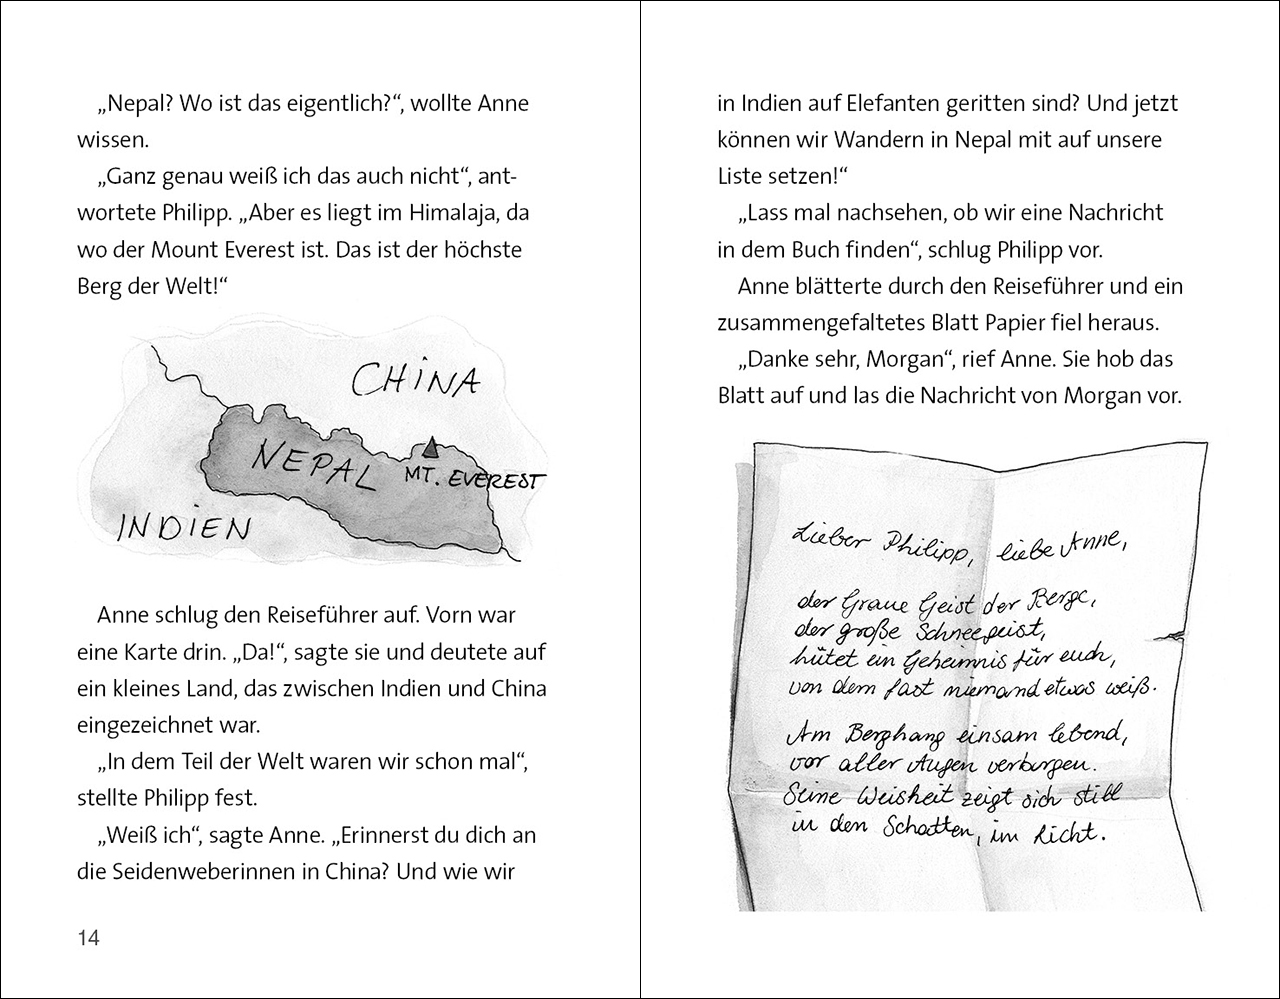 „Nepal? Wo ist das eigentlich?“, wollte Anne
wissen.
„Ganz genau weiß ich das auch nicht“, ant-
wortete Philipp. „Aber es liegt im Himalaja, da
wo der Mount Everest ist. Das ist der höchste
Berg der Welt!“
CHINA
NEPAL
MT. EVEREST
INDIEN
Anne schlug den Reiseführer auf. Vorn war
eine Karte drin. „Da!“, sagte sie und deutete auf
ein kleines Land, das zwischen Indien und China
eingezeichnet war.
„In dem Teil der Welt waren wir schon mal“,
stellte Philipp fest.
„Weiß ich“, sagte Anne. „Erinnerst du dich an
die Seidenweberinnen in China? Und wie wir
14
in Indien auf Elefanten geritten sind? Und jetzt
können wir Wandern in Nepal mit auf unsere
Liste setzen!“
„Lass mal nachsehen, ob wir eine Nachricht
in dem Buch finden“, schlug Philipp vor.
Anne blätterte durch den Reiseführer und ein
zusammengefaltetes Blatt Papier fiel heraus.
„Danke sehr, Morgan“, rief Anne. Sie hob das
Blatt auf und las die Nachricht von Morgan vor.
Lieber Philipp, liebe Anne,
der Graue Geist der Berge,
der große Schneegeist,
hütet ein Geheimnis für euch,
von dem fast niemand etwas weiß.
Am Berghang einsam lebend,
vor aller Augen verborgen.
Seine Weisheit zeigt sich still
in den Schatten, im Licht.